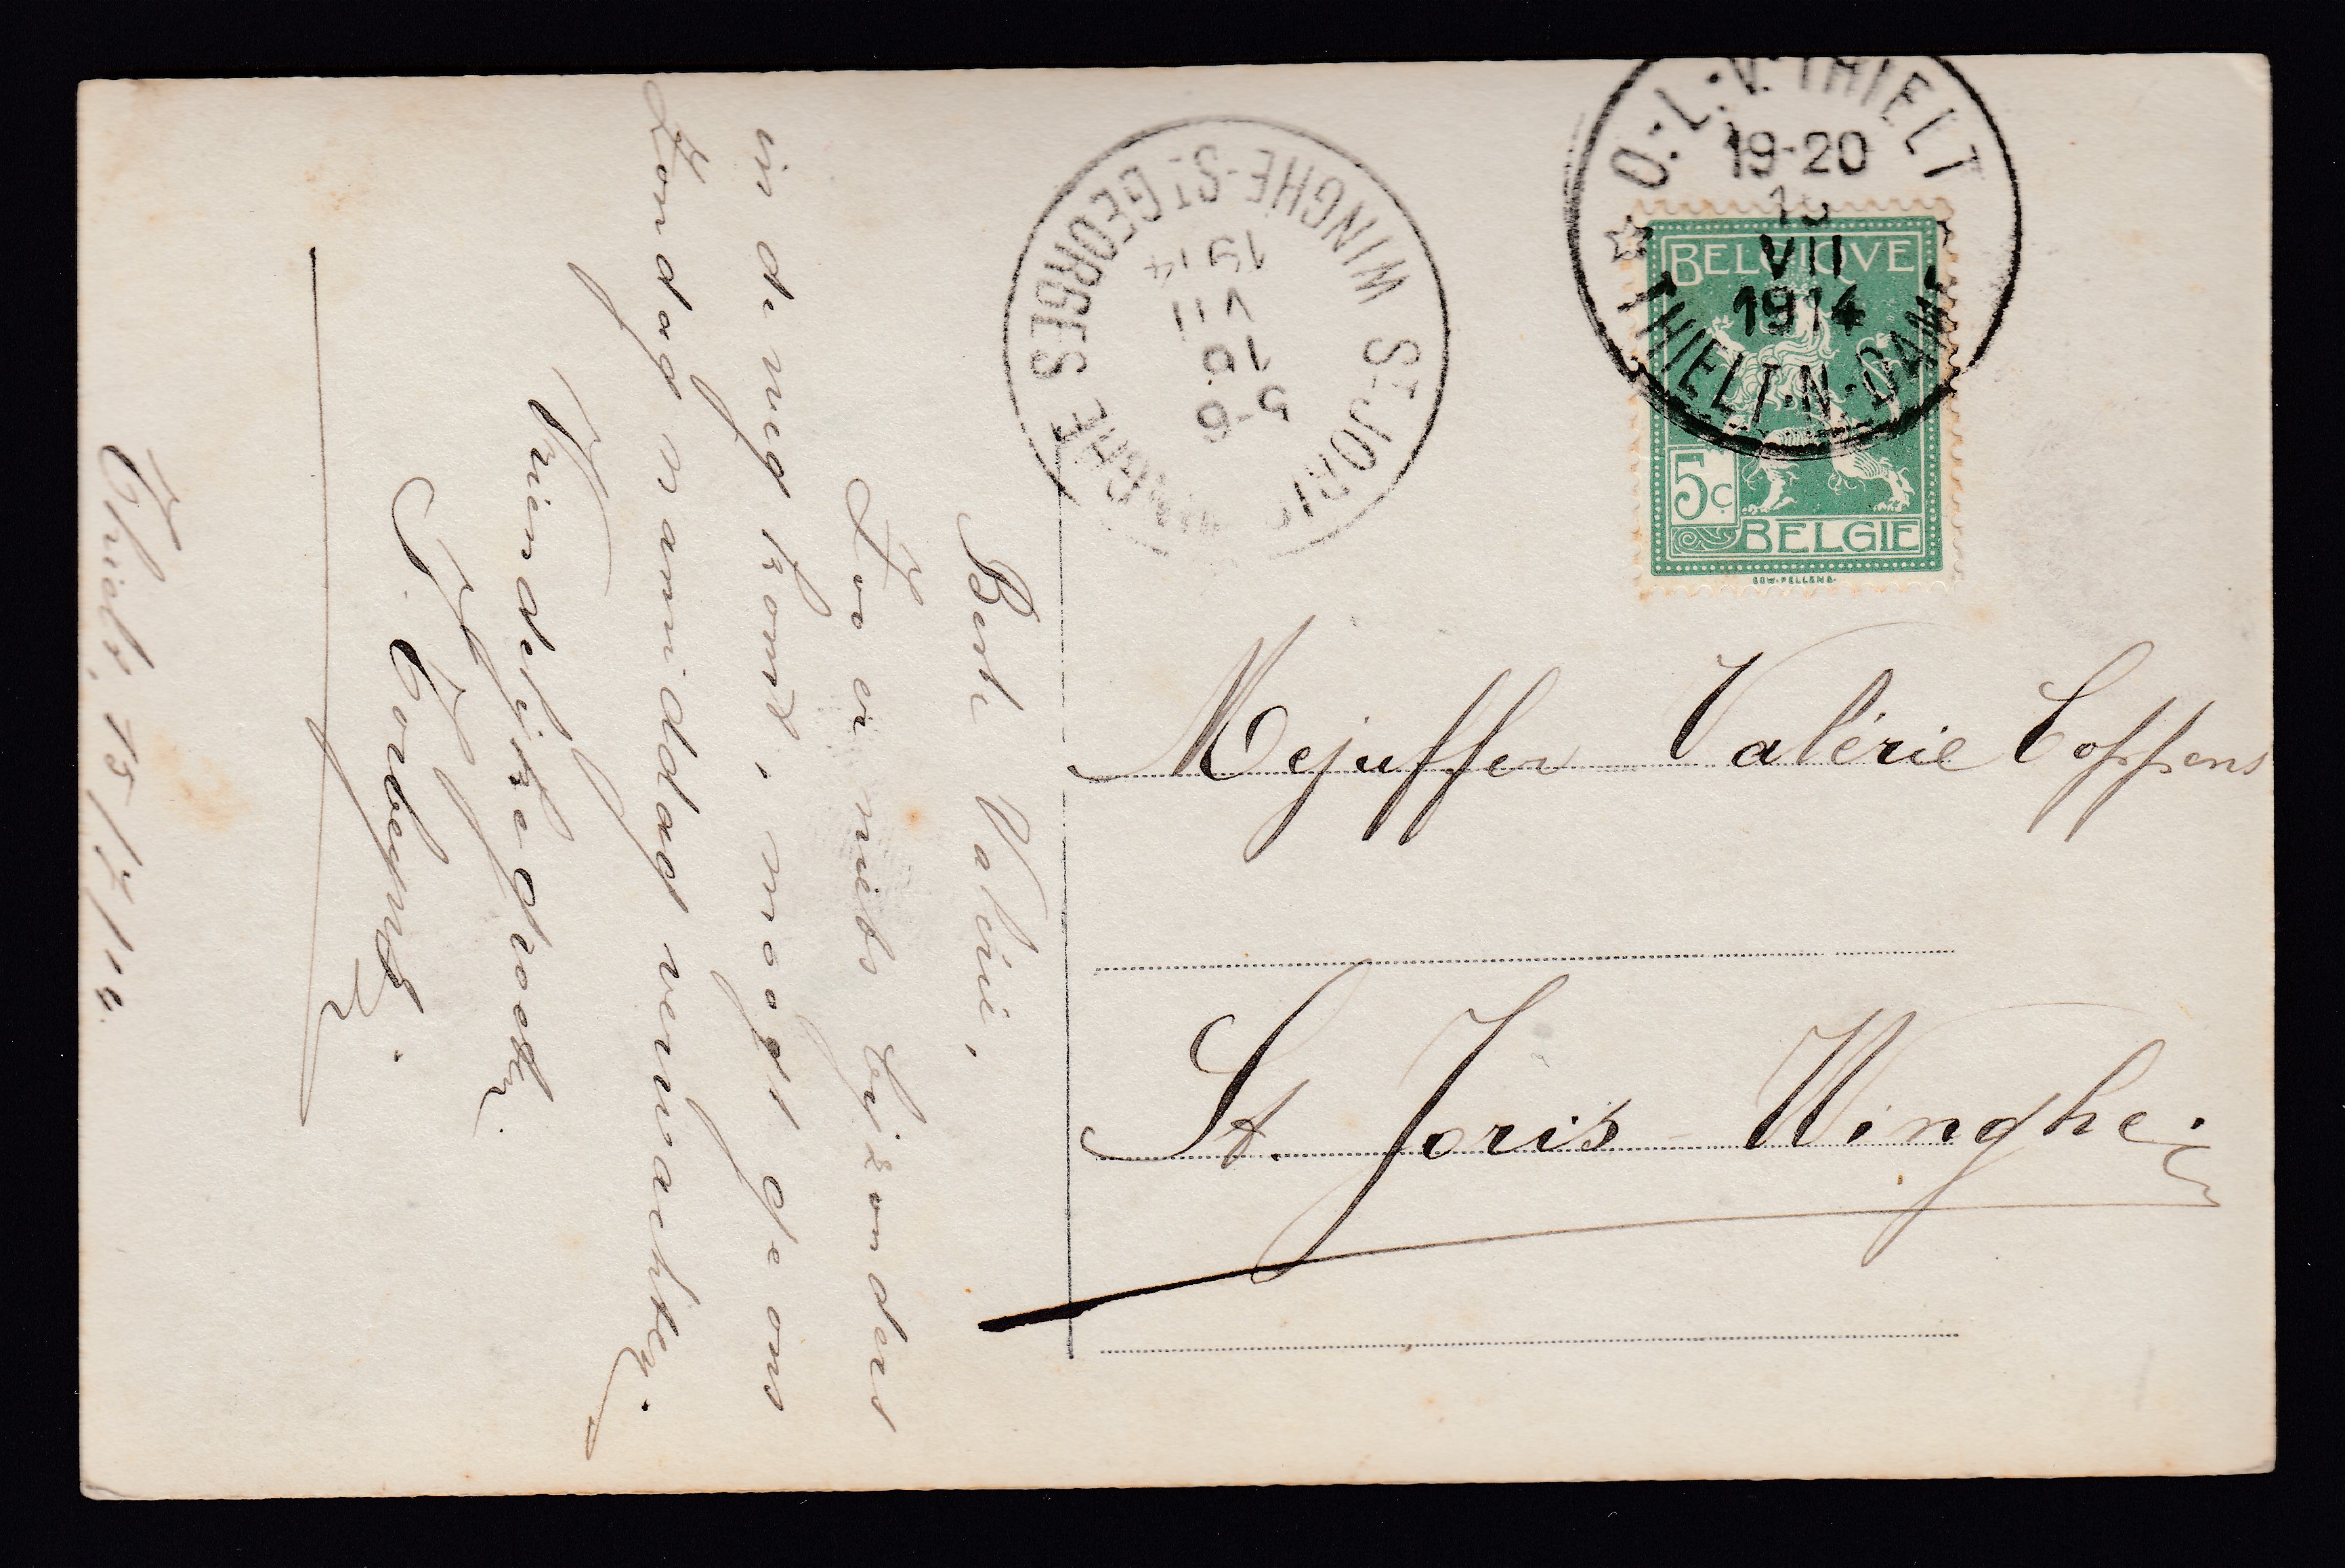 Thielt, 15/7/14.
Beste Valérie,
Zoo er niets bijzonders
in de weg komt, moogt ge ons
Zondag namiddag verwachten.
Vriendelijke groeten.
O.-L.-V. THIELT
19-20
15
VII
1914
THIELT-N-DAME
ST-JORIS WINGHE
WINGHE-ST GEORGES
5-6
16
VII
1914
BELGIQVE
5c
BELGIE
EDW. PELLENS
Mejuffer Valérie Coppens
St. Joris-Winghe.